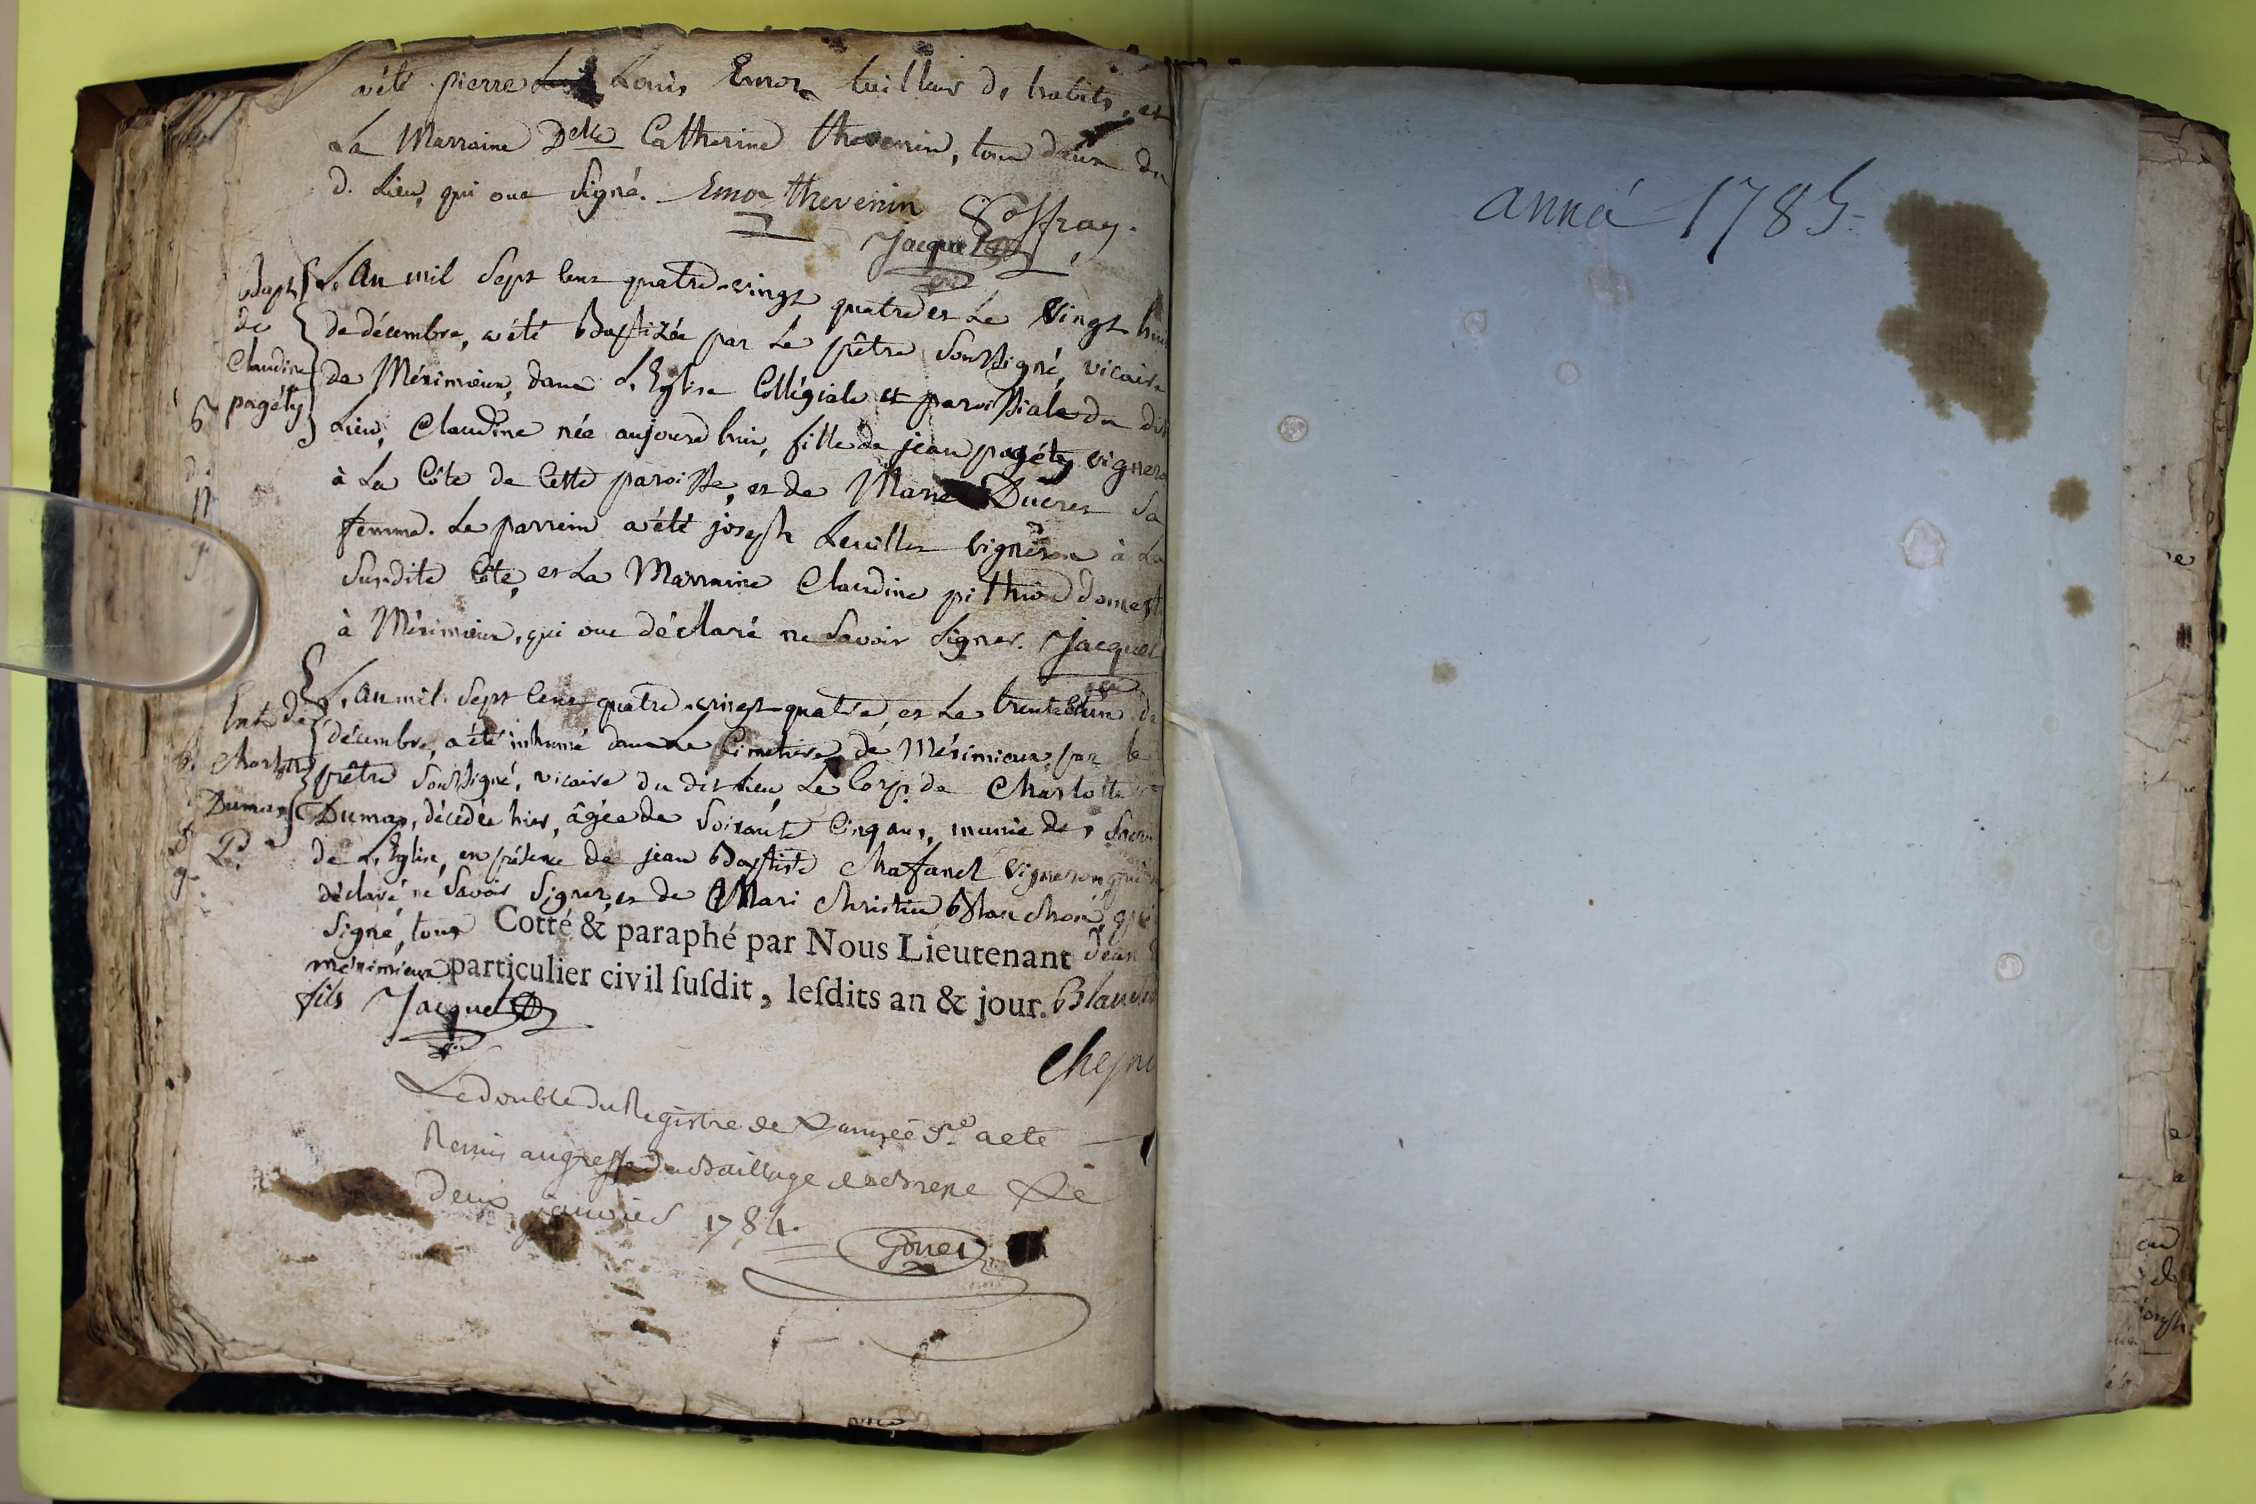 a été pierre Louis Emor tailleur d'habits, et
La Marraine Delle Catherine thevenin, tous deux du
d. Lieu, qui ont signé. Emor thevenin
Joffray.
Jacquet
Bapt.
de
Claudine
pagéty
L'An mil sept cent quatre-vingt quatre et Le vingt huit
de décembre, a été Baptizée par Le prêtre soussigné, vicaire
de Méximieux, dans L'Eglise Collégiale et paroissiale du dit
Lieu, Claudine née aujourd'hui, fille de jean pagéty vigneron
à La Côte de Cette paroisse, et de Marie Ducret sa
femme. Le parrain a été joseph Levillez vigneron à La
susdite Côte, et La Marraine Claudine pithiod domest
à Méximieux, qui ont déclaré ne savoir signer. Jacquet
Ent. de
Charlotte
Dumas
L'An mil sept cent quatre-vingt quatre, et Le trente et un de
décembre, a été inhumé dans Le Cimetière de Méximieux, par le
prêtre soussigné, vicaire du dit lieu, Le Corps de Charlotte
Dumas, décédée hier, âgée de soixante Cinq ans, munie des sacre
de L'Eglise, en présence de jean Baptiste Chafanel vigneron qui a
déclaré ne savoir signer, et de Mari Christin Blanchon, qui
signé, tous
Cotté & paraphé par Nous Lieutenant
particulier civil susdit, lesdits an & jour.
méximieux
fils Jacquet
Le double du Registre de L'année dre a été
Remis au greffe du Baillage de Bresse Le
deux janvier 1784.
Gorret
anné 1785